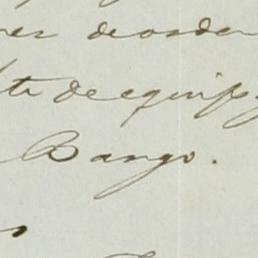 de orden
te de equip
Bango.